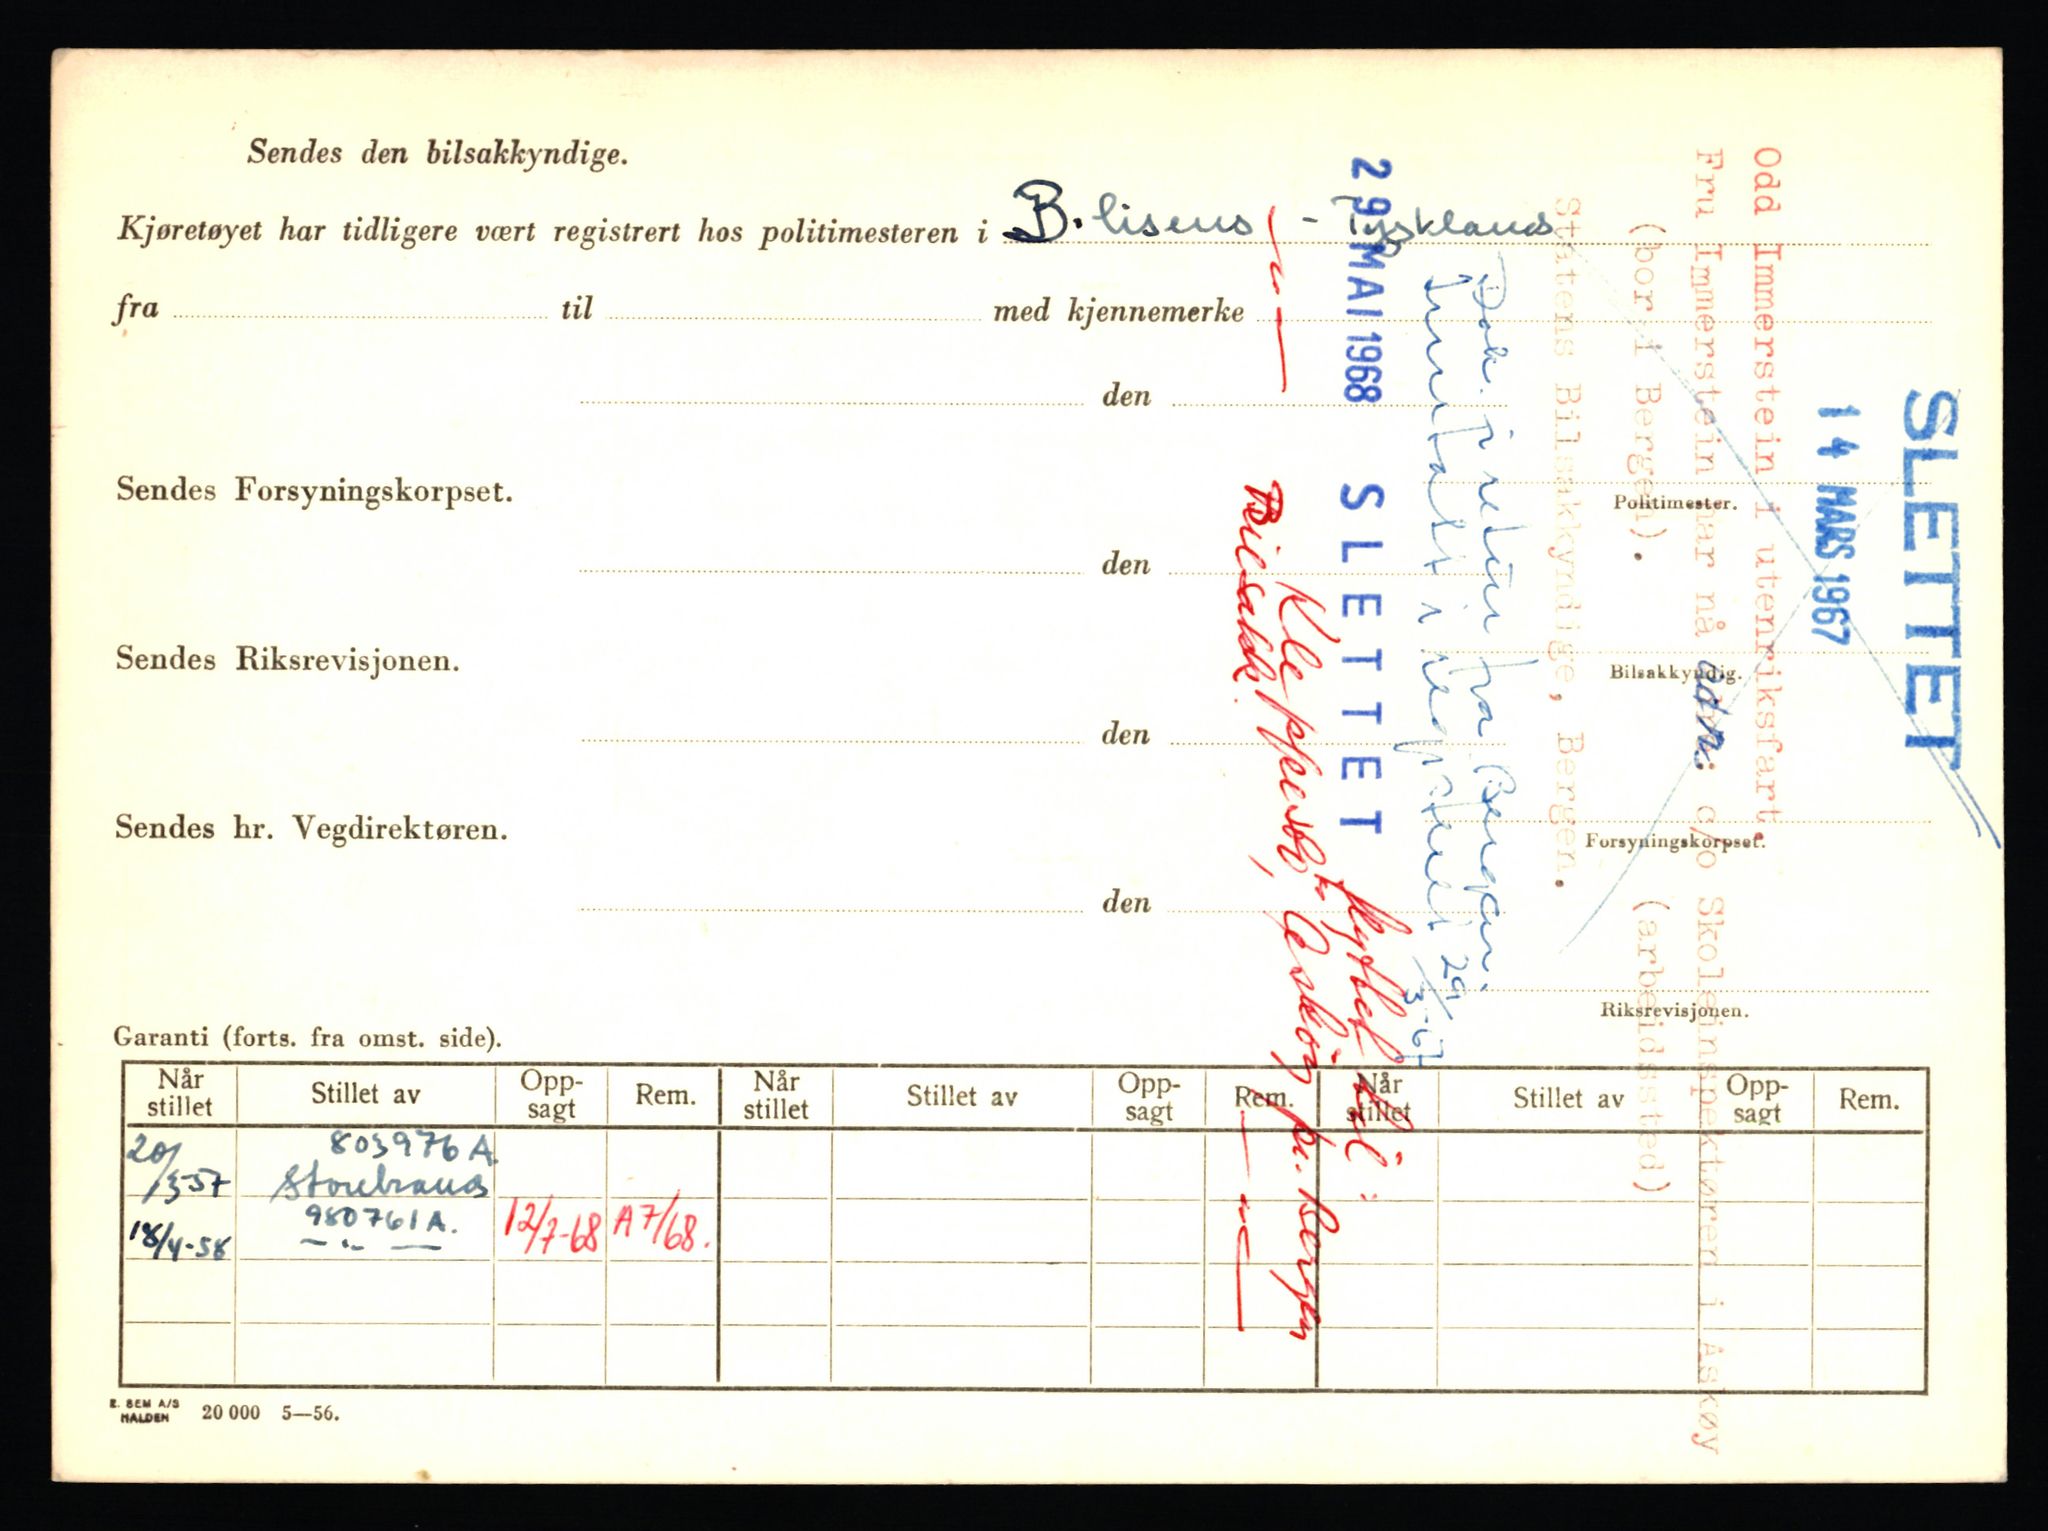 Sendes den bilsakkyndige.
Kjøretøyet har tidligere vært registrert hos politimesteren i B. lisens - Tyskland
fra til med kjennemerke
den
Politimester.
Sendes Forsyningskorpset.
den
Bilsakkyndig.
Sendes Riksrevisjonen.
den
Forsyningskorpset.
Sendes hr. Vegdirektøren.
den
Riksrevisjonen.
Garanti (forts. fra omst. side).
Når stillet Stillet av Opp-sagt Rem. Når stillet Stillet av Opp-sagt Rem. Når stillet Stillet av Opp-sagt Rem.
20/3-57 803976 A. Storebrand
18/4-58 980761 A. — " — 12/7-68 A7/68.
E. SEM A/S
HALDEN 20 000 5—56.
SLETTET
14 MARS 1967
Odd Immerstein i utenriksfart.
Fru Immerstein har nå adr.: c/o Skoleinspektøren i Askøy
(bor i Bergen). (arbeidssted)
Statens Bilsakkyndige, Bergen.
Dok. i retur fra Bergen.
Innfalt i registeret 29/3-67
29 MAI 1968 SLETTET
flyttet til:
Kleppestø, Askøy pr. Bergen
— " — Bilsakk. — " —